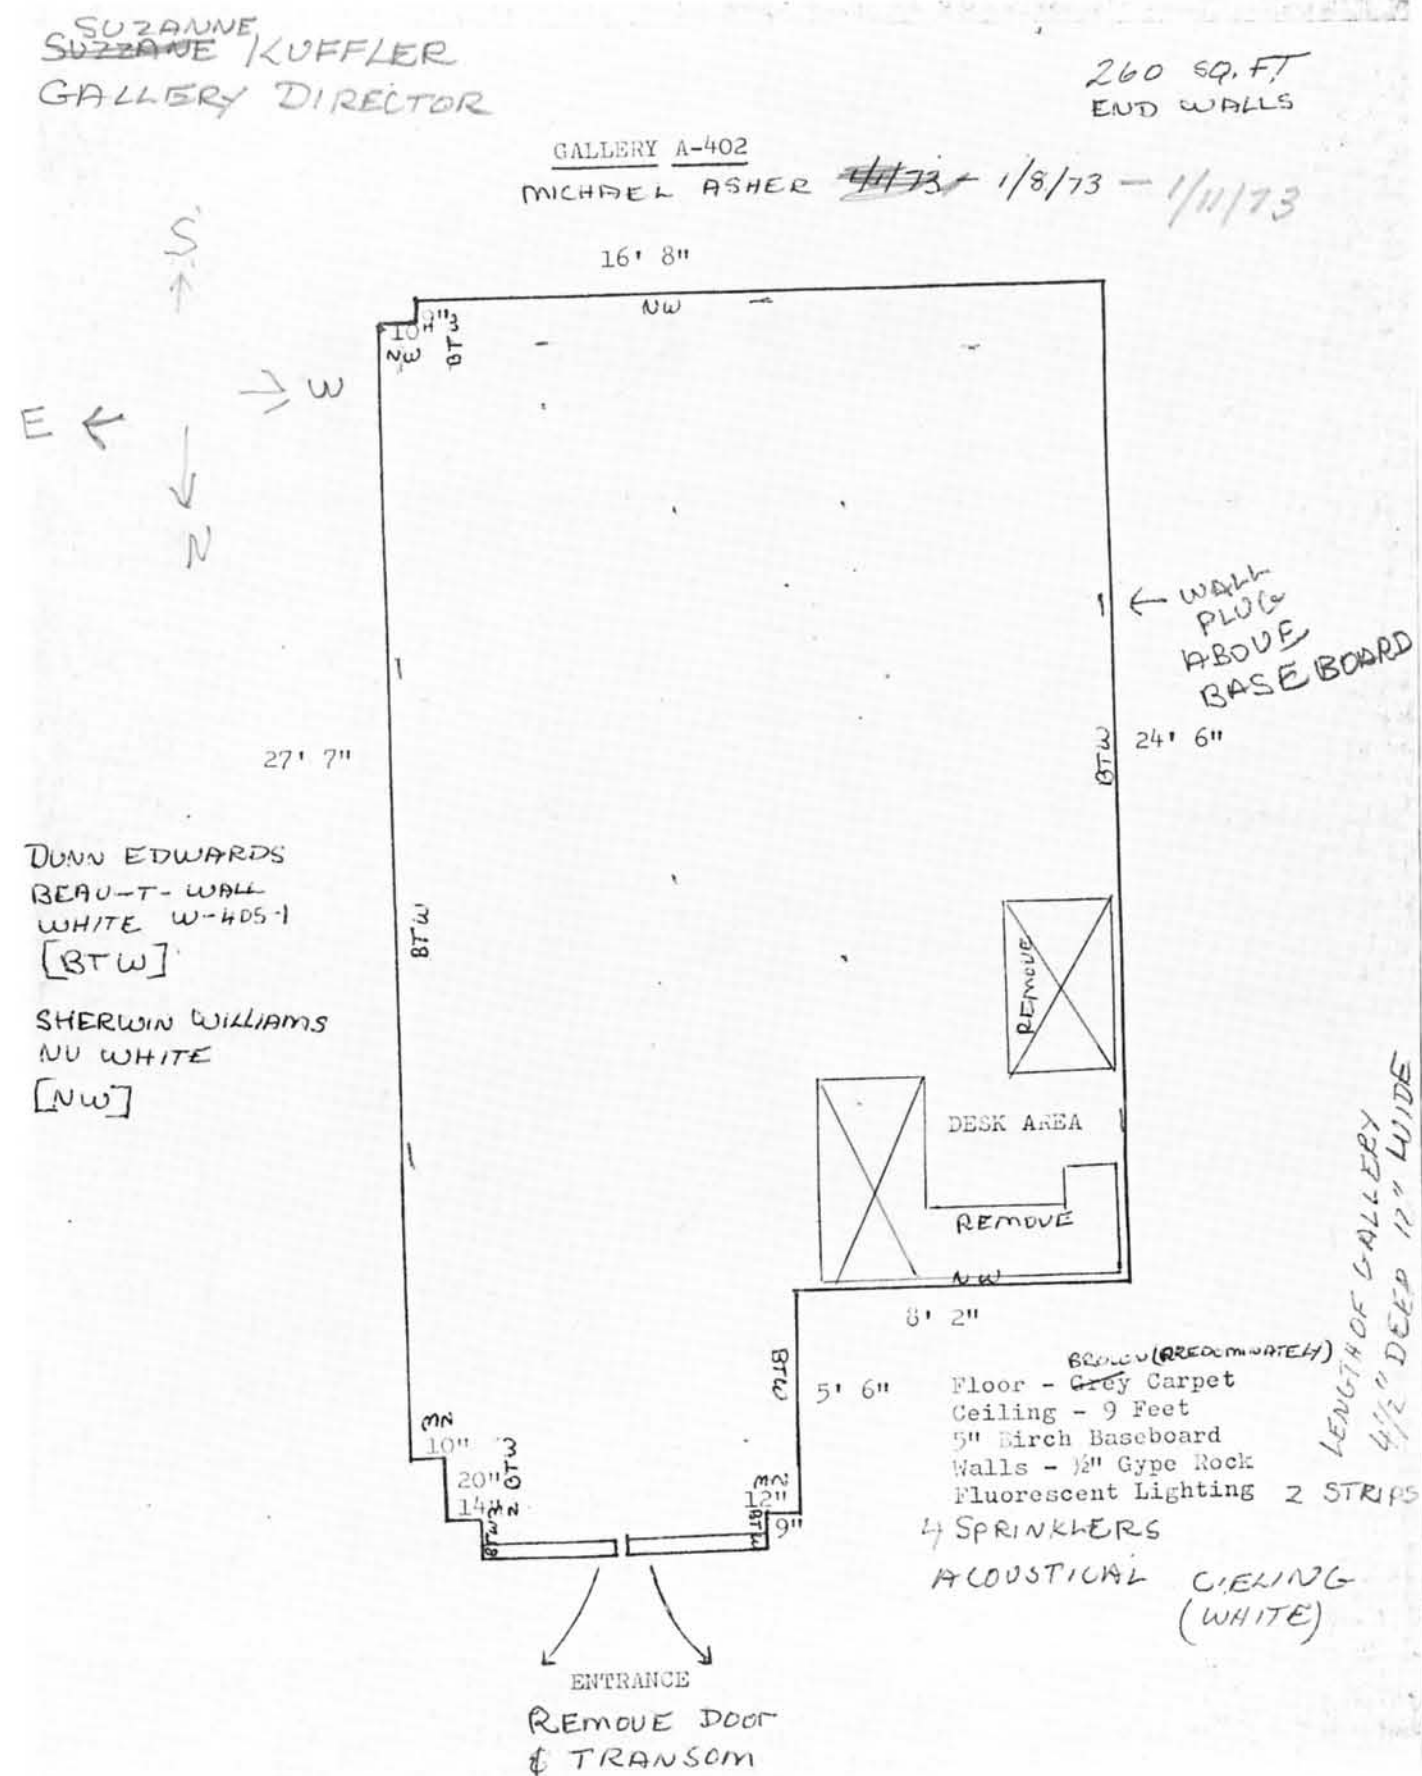 SUZANNE
SUZZANE KUFFLER
GALLERY DIRECTOR
260 SQ. FT
END WALLS
GALLERY A-402
MICHAEL ASHER 1/11/73 - 1/8/73 - 1/11/73
S
16' 8"
NW
9"
10"
NW
BTW
W
E
N
WALL
PLUG
ABOVE
BASEBOARD
27' 7"
BTW
24' 6"
DUNN EDWARDS
BEAU-T-WALL
WHITE W-405-1
[BTW]
BTW
SHERWIN WILLIAMS
NU WHITE
[NW]
REMOVE
DESK AREA
REMOVE
NW
8' 2"
LENGTH OF GALLERY
4 1/2" DEEP 12" WIDE
BTW
5' 6"
BROWN (PREDOMINATELY)
Floor - Grey Carpet
Ceiling - 9 Feet
5" Birch Baseboard
Walls - ½" Gype Rock
Fluorescent Lighting 2 STRIPS
4 SPRINKLERS
ACOUSTICAL CIELING
(WHITE)
NW
10"
20"
BTW
14"
NW
BTW
NW
12"
BTW
9"
ENTRANCE
REMOVE DOOR
& TRANSOM